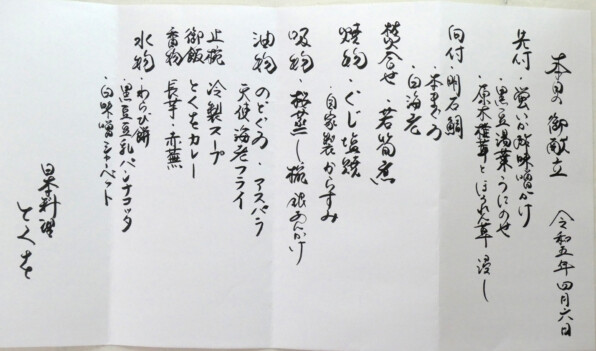 本日の御献立 令和五年四月六日
先付・蛍いか酢味噌かけ
・黒豆湯葉うにのせ
・原木椎茸とほうれん草浸し
向付・明石鯛
・本まぐろ
・白海老
焚合せ・若筍煮
焼物・ぐじ塩焼
・自家製からすみ
吸物・桜蒸し 銀あんかけ
油物 のどぐろ・アスパラ
天使海老フライ
止椀 冷製スープ
御飯 とくをカレー
香物 長芋・赤蕪
水物・わらび餅
・黒豆豆乳パンナコッタ
・白味噌シャーベット
日本料理
とくを